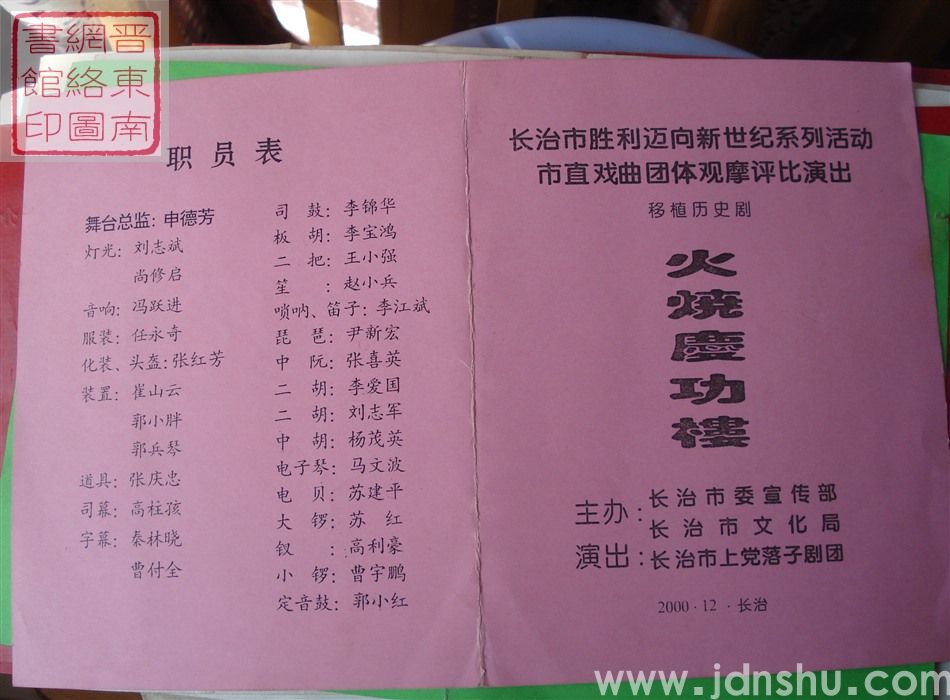 晋東南
網絡圖
書館印
职员表
舞台总监：申德芳
灯光：刘志斌
尚修启
音响：冯跃进
服装：任永奇
化装、头盔：张红芳
装置：崔山云
郭小胖
郭兵琴
道具：张庆忠
司幕：高柱孩
字幕：秦林晓
曹付全
司鼓：李锦华
板胡：李宝鸿
二把：王小强
笙：赵小兵
唢呐、笛子：李江斌
琵琶：尹新宏
中阮：张喜英
二胡：李爱国
二胡：刘志军
中胡：杨茂英
电子琴：马文波
电贝：苏建平
大锣：苏红
钗：高利豪
小锣：曹宇鹏
定音鼓：郭小红
长治市胜利迈向新世纪系列活动
市直戏曲团体观摩评比演出
移植历史剧
火燒慶功樓
主办：长治市委宣传部
长治市文化局
演出：长治市上党落子剧团
2000·12·长治
www.jdnshu.com